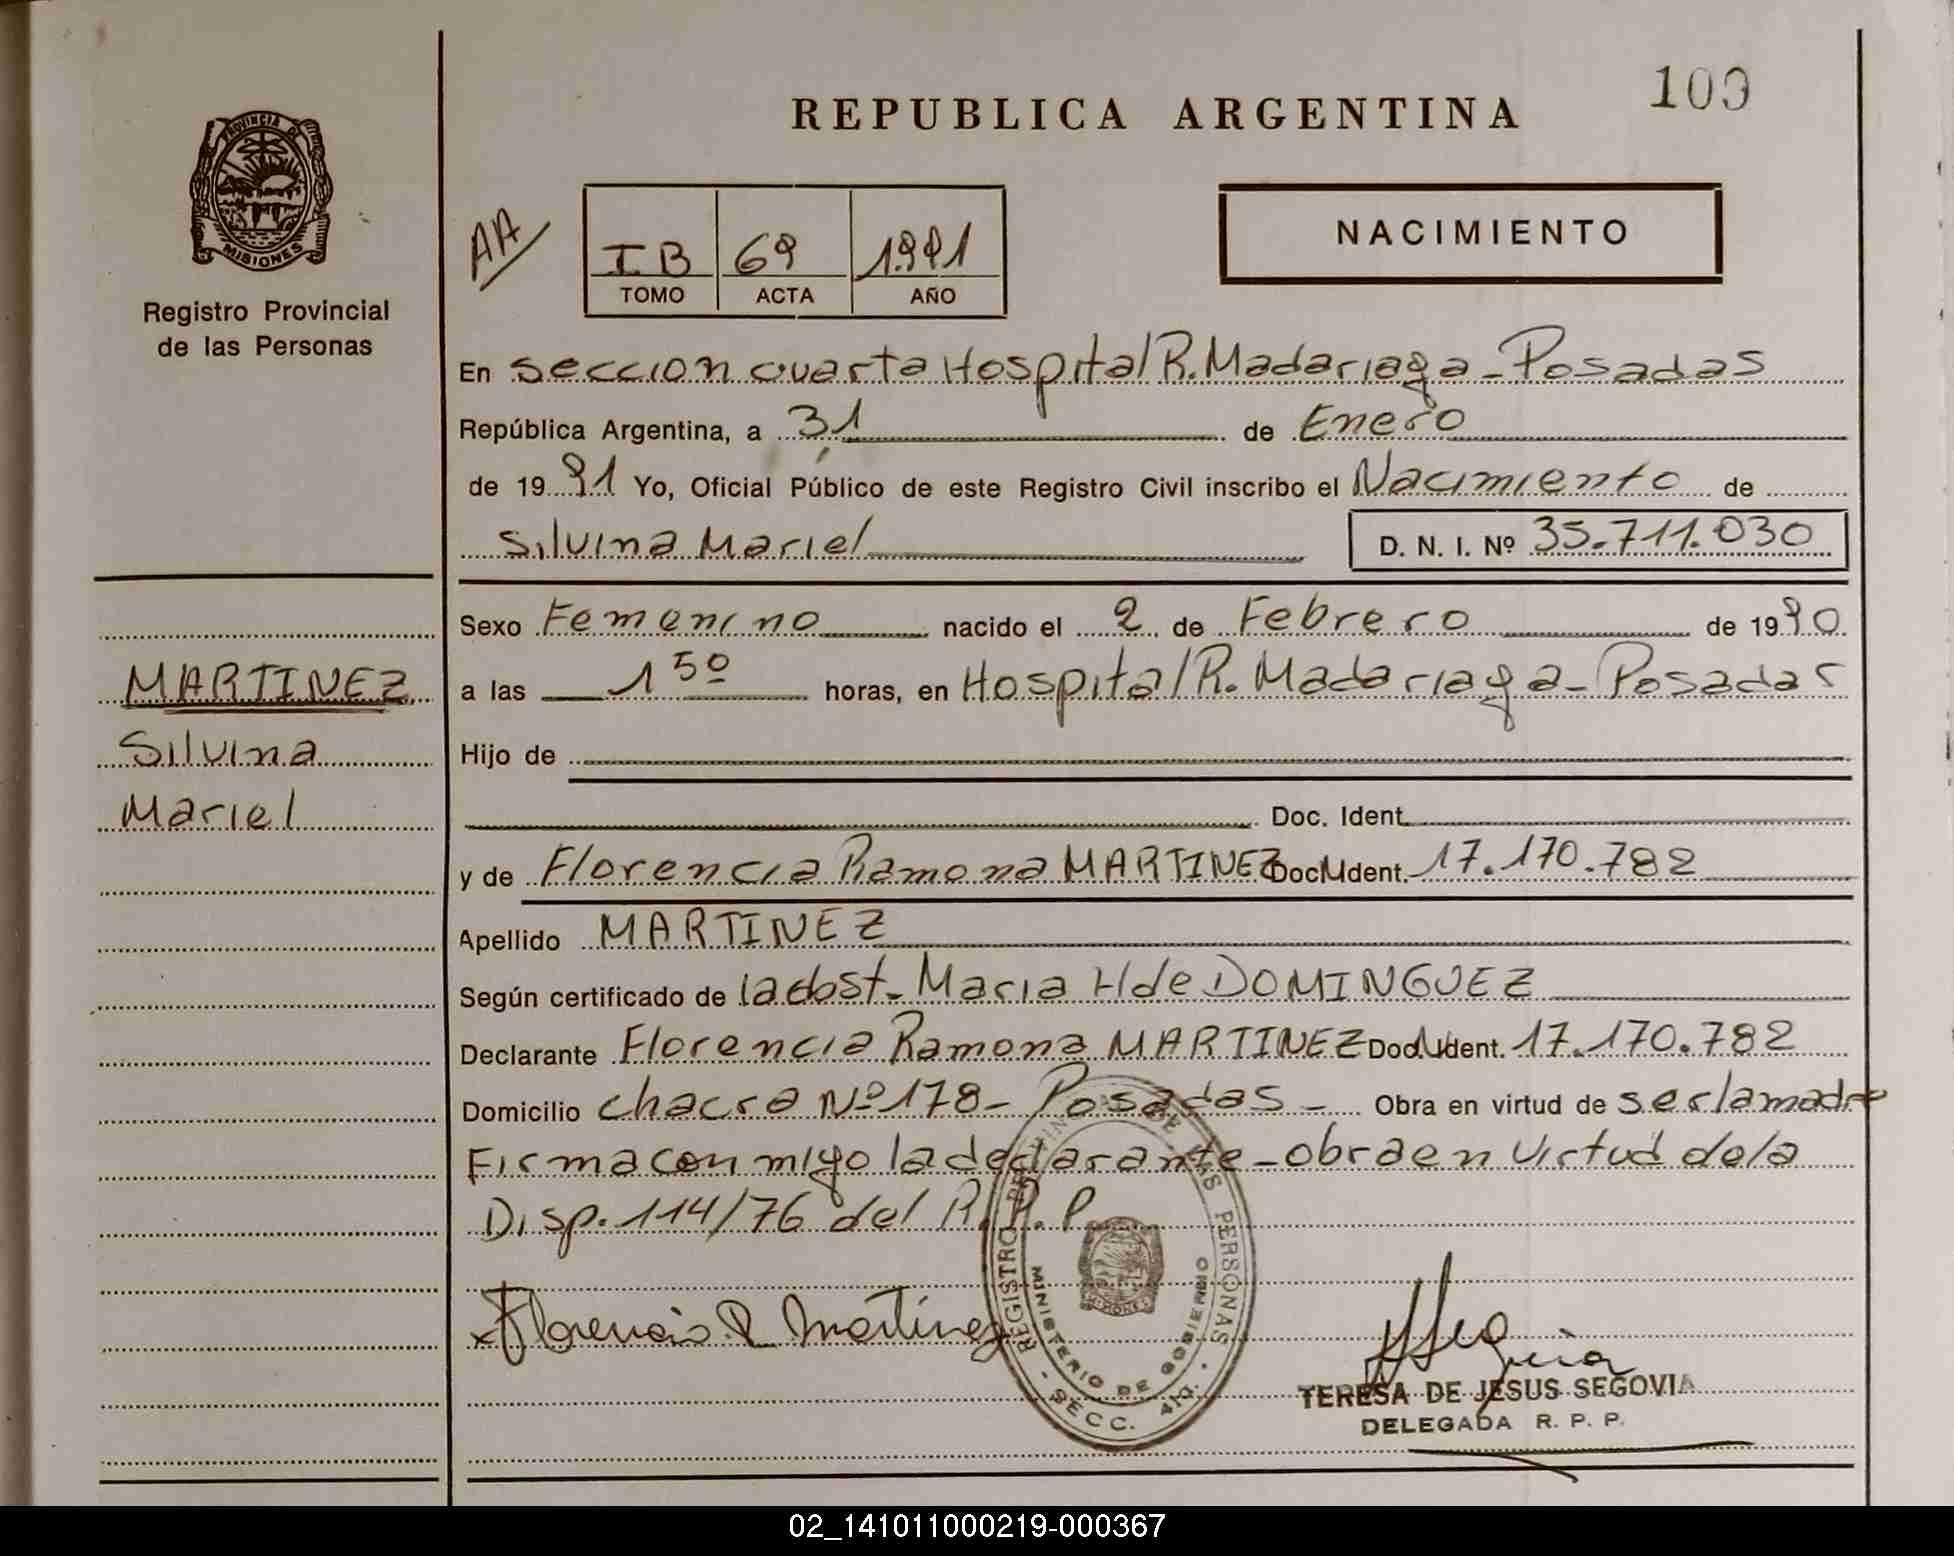 103
REPUBLICA ARGENTINA
PROVINCIA DE
MISIONES
Registro Provincial
de las Personas
AA
IB 69 1991
TOMO ACTA AÑO
NACIMIENTO
En seccion cuarta Hospital R. Madariaga - Posadas
República Argentina, a 31 de Enero
de 1991 Yo, Oficial Público de este Registro Civil inscribo el Nacimiento de
Silvina Mariel D. N. I. Nº 35.711.030
Sexo Femenino nacido el 2 de Febrero de 1990
a las 15º horas, en Hospital R. Madariaga - Posadas
Hijo de
Doc. Ident.
y de Florencia Ramona MARTINEZ Doc. Ident. 17.170.782
Apellido MARTINEZ
Según certificado de la obst. Maria H de DOMINGUEZ
Declarante Florencia Ramona MARTINEZ Doc. Ident. 17.170.782
Domicilio chacra Nº 178 - Posadas - Obra en virtud de ser la madre
Firma con migo la declarante - obra en virtud de la
Disp. 114/76 del R. P. P
MARTINEZ
Silvina
Mariel
x Florencia R Martinez
REGISTRO PROVINCIAL DE LAS PERSONAS
MINISTERIO DE GOBIERNO
MISIONES
SECC. 4ta.
Segovia
TERESA DE JESUS SEGOVIA
DELEGADA R. P. P.
02_141011000219-000367